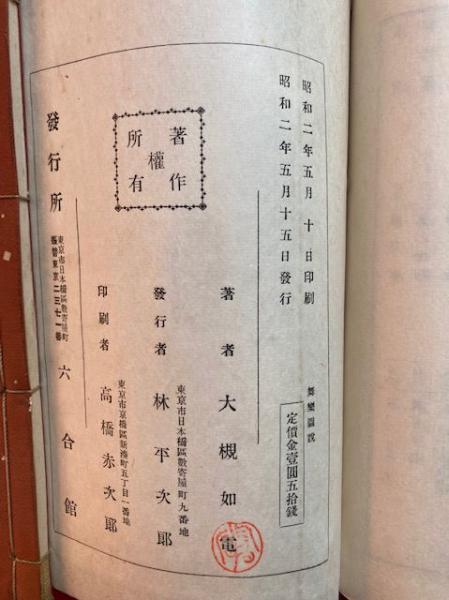 昭和二年五月十日印刷
昭和二年五月十五日發行
舞樂圖說
定價金壹圓五拾錢
著作權所有
著者 大槻如電
東京市日本橋區數寄屋町九番地
發行者 林平次郎
東京市京橋區新湊町五丁目一番地
印刷者 高橋赤次郎
發行所
東京市日本橋區數寄屋町
振替東京二三七一番
六合館